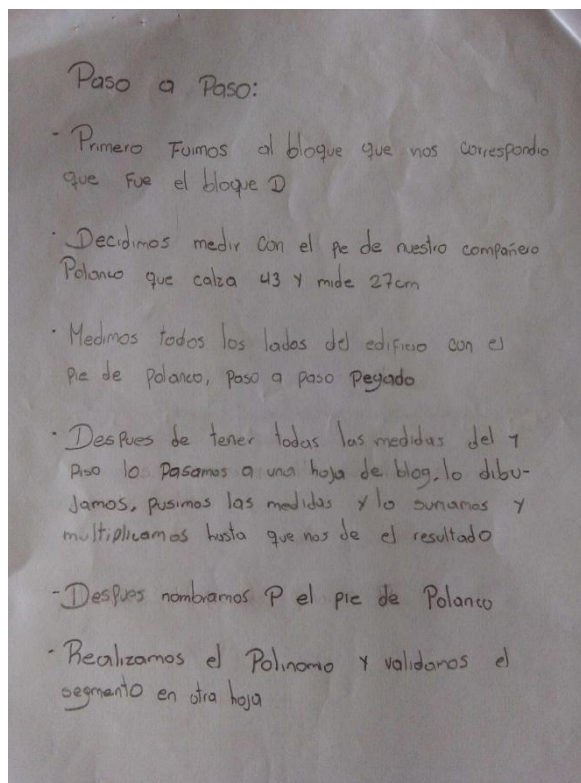 Paso a Paso:
- Primero Fuimos al bloque que nos correspondio
que Fue el bloque D
- Decidimos medir con el pie de nuestro compañero
Polanco que calza 43 y mide 27cm
- Medimos todos los lados del edificio con el
pie de polanco, Paso a paso Pegado
- Despues de tener todas las medidas del 1
Piso lo Pasamos a una hoja de blog, lo dibu-
Jamos, pusimos las medidas y lo sumamos y
multiplicamos hasta que nos de el resultado
- Despues nombramos P el pie de Polanco
- Realizamos el Polinomo y validamos el
segmento en otra hoja